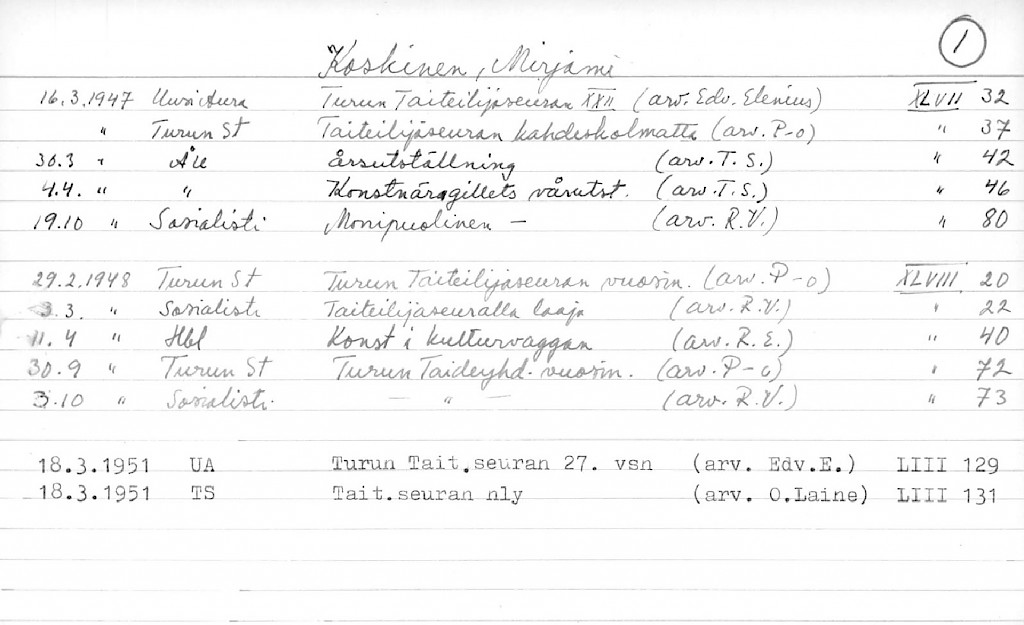 1
Koskinen, Mirjami
16.3.1947 Uusi Aura Turun Taiteilijaseuran XXII (arv. Edv. Elenius) XLVII 32
" Turun St Taiteilijaseuran kahdeskolmatta (arv. P-o) " 37
30.3 " ÅU årsutställning (arv. T.S.) " 42
4.4. " " Konstnärsgillets vårutst. (arv. T.S.) " 46
19.10 " Sosialisti Monipuolinen — (arv. R.V.) " 80
29.2.1948 Turun St Turun Taiteilijaseuran vuosin. (arv. P-o) XLVIII 20
3.3. " Sosialisti Taiteilijaseuralla laaja (arv. R.V.) " 22
11.4 " Hbl Konst i kulturvaggan (arv. R.E.) " 40
30.9 " Turun St Turun Taideyhd. vuosin. (arv. P-o) " 72
3.10 " Sosialisti — " — (arv. R.V.) " 73
18.3.1951 UA Turun Tait.seuran 27. vsn (arv. Edv.E.) LIII 129
18.3.1951 TS Tait.seuran nly (arv. O.Laine) LIII 131